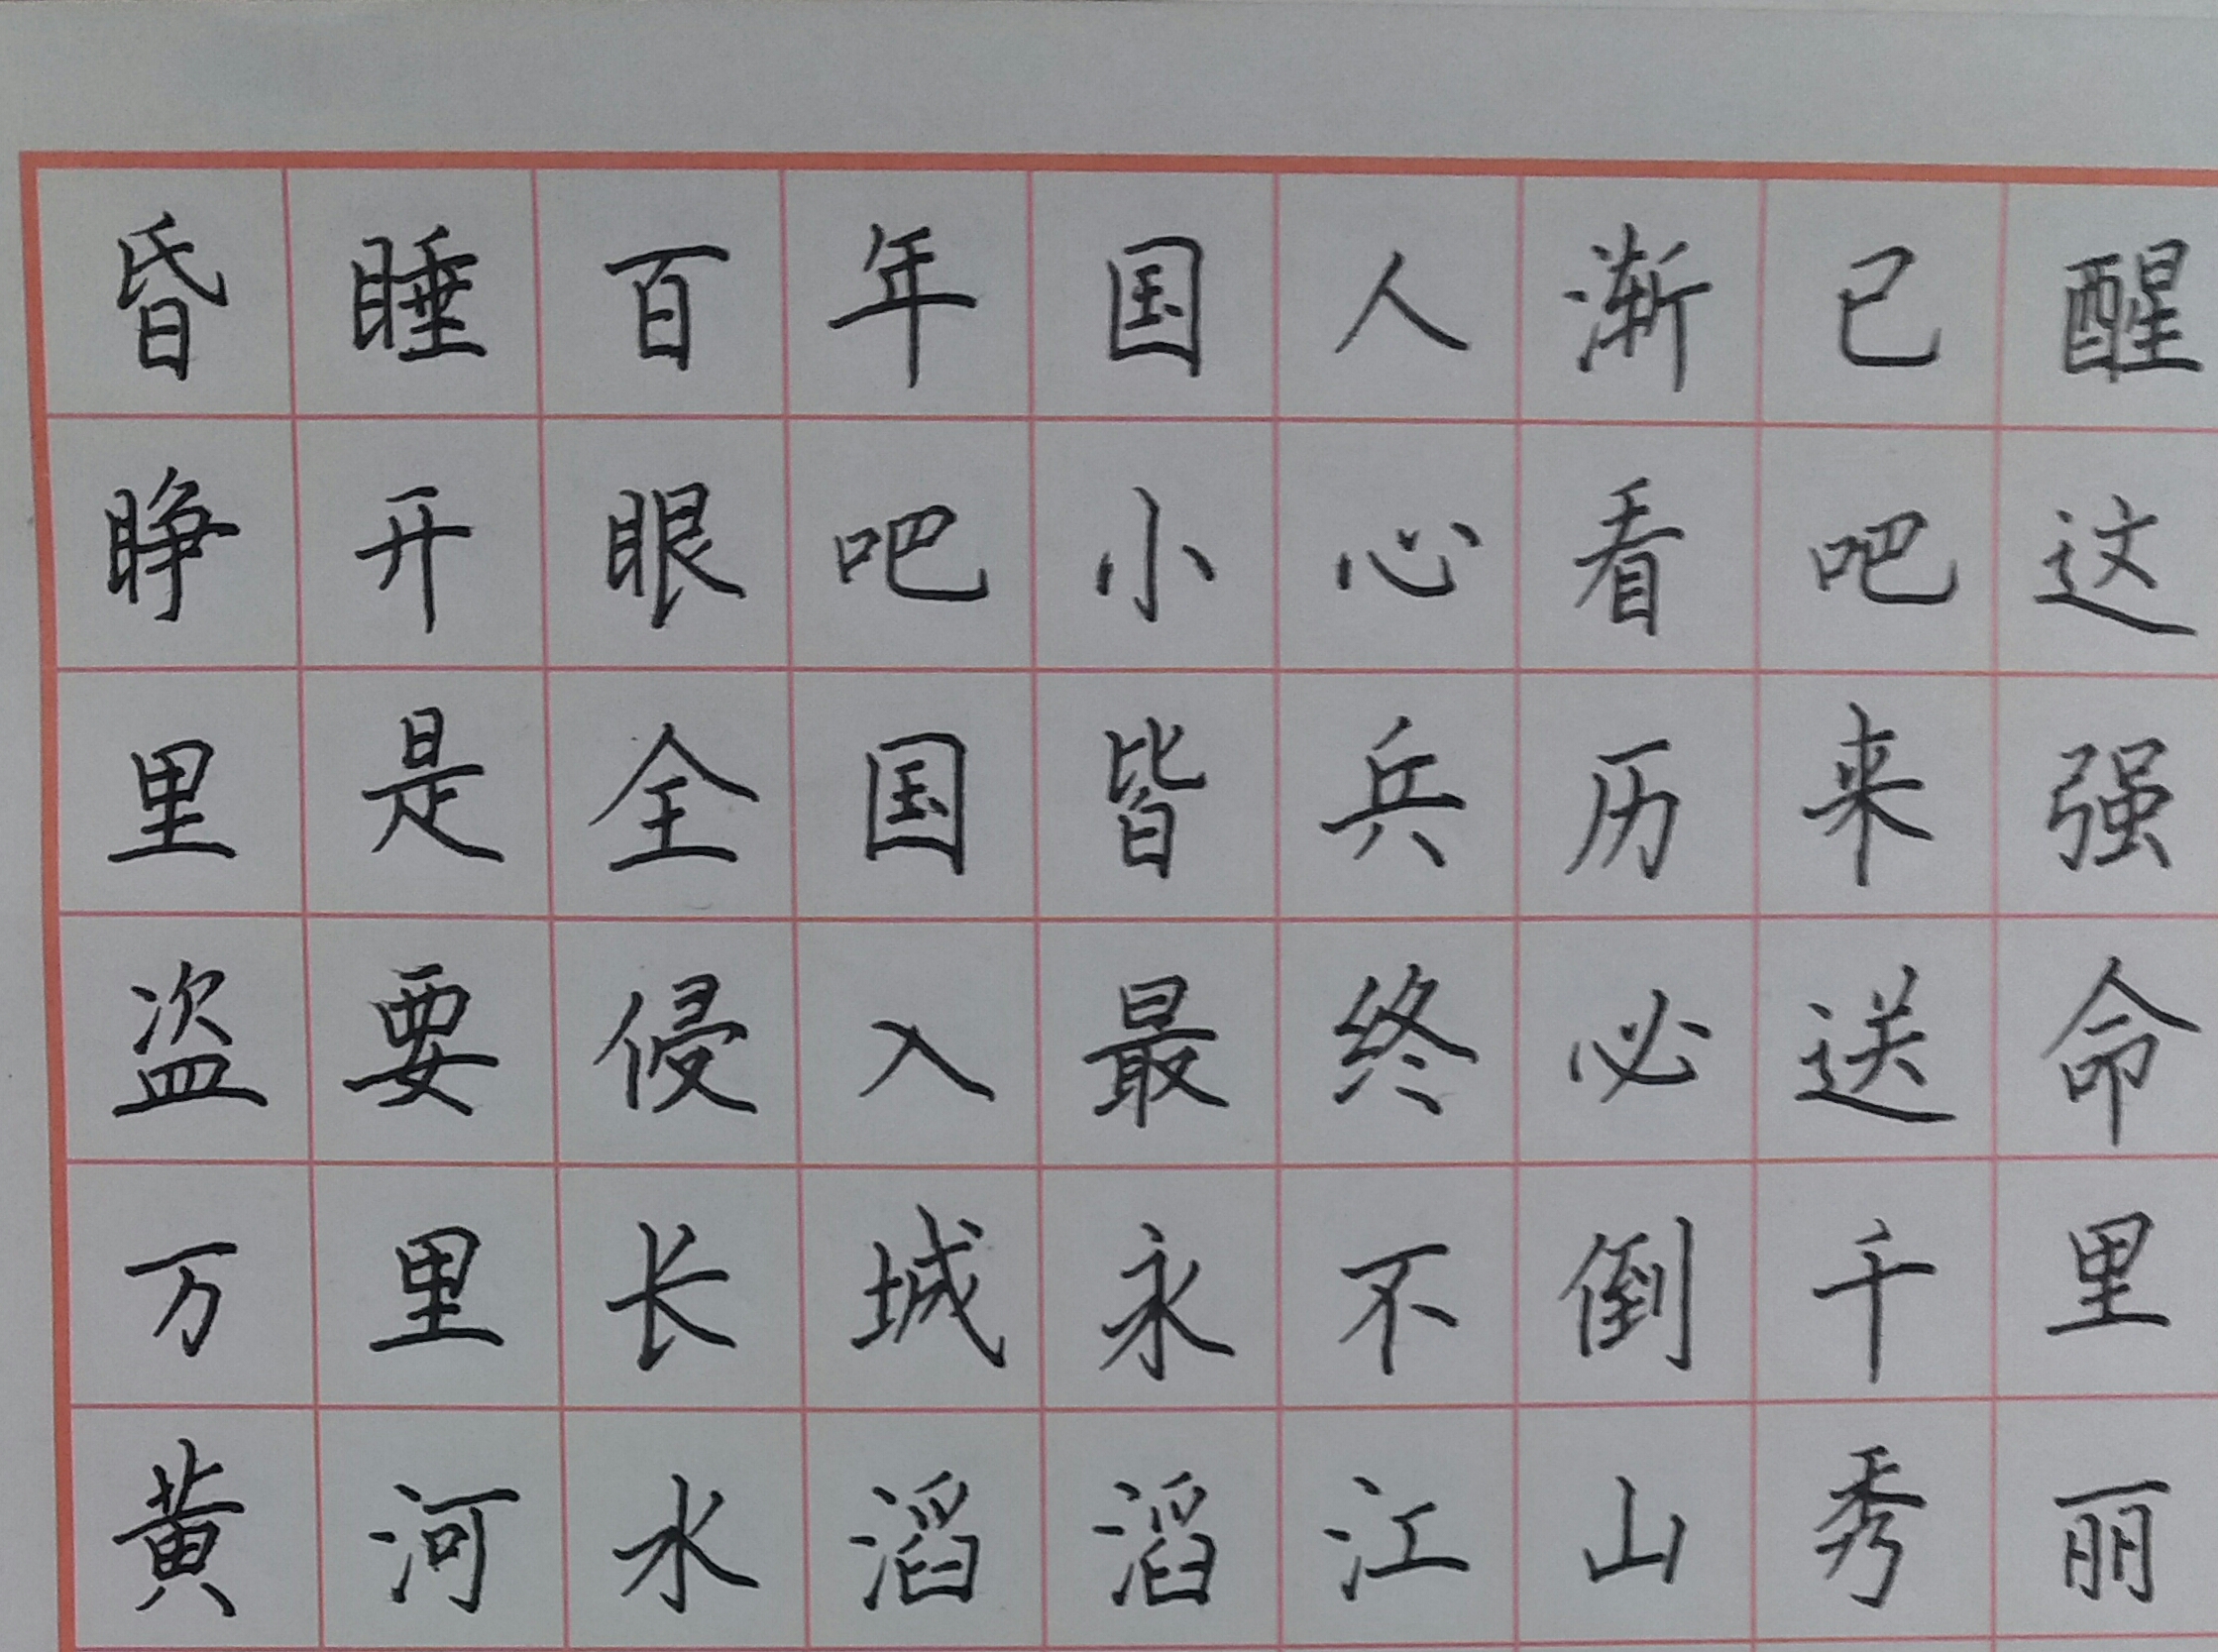 昏睡百年国人渐已醒
睁开眼吧小心看吧这
里是全国皆兵历来强
盗要侵入最终必送命
万里长城永不倒千里
黄河水滔滔江山秀丽